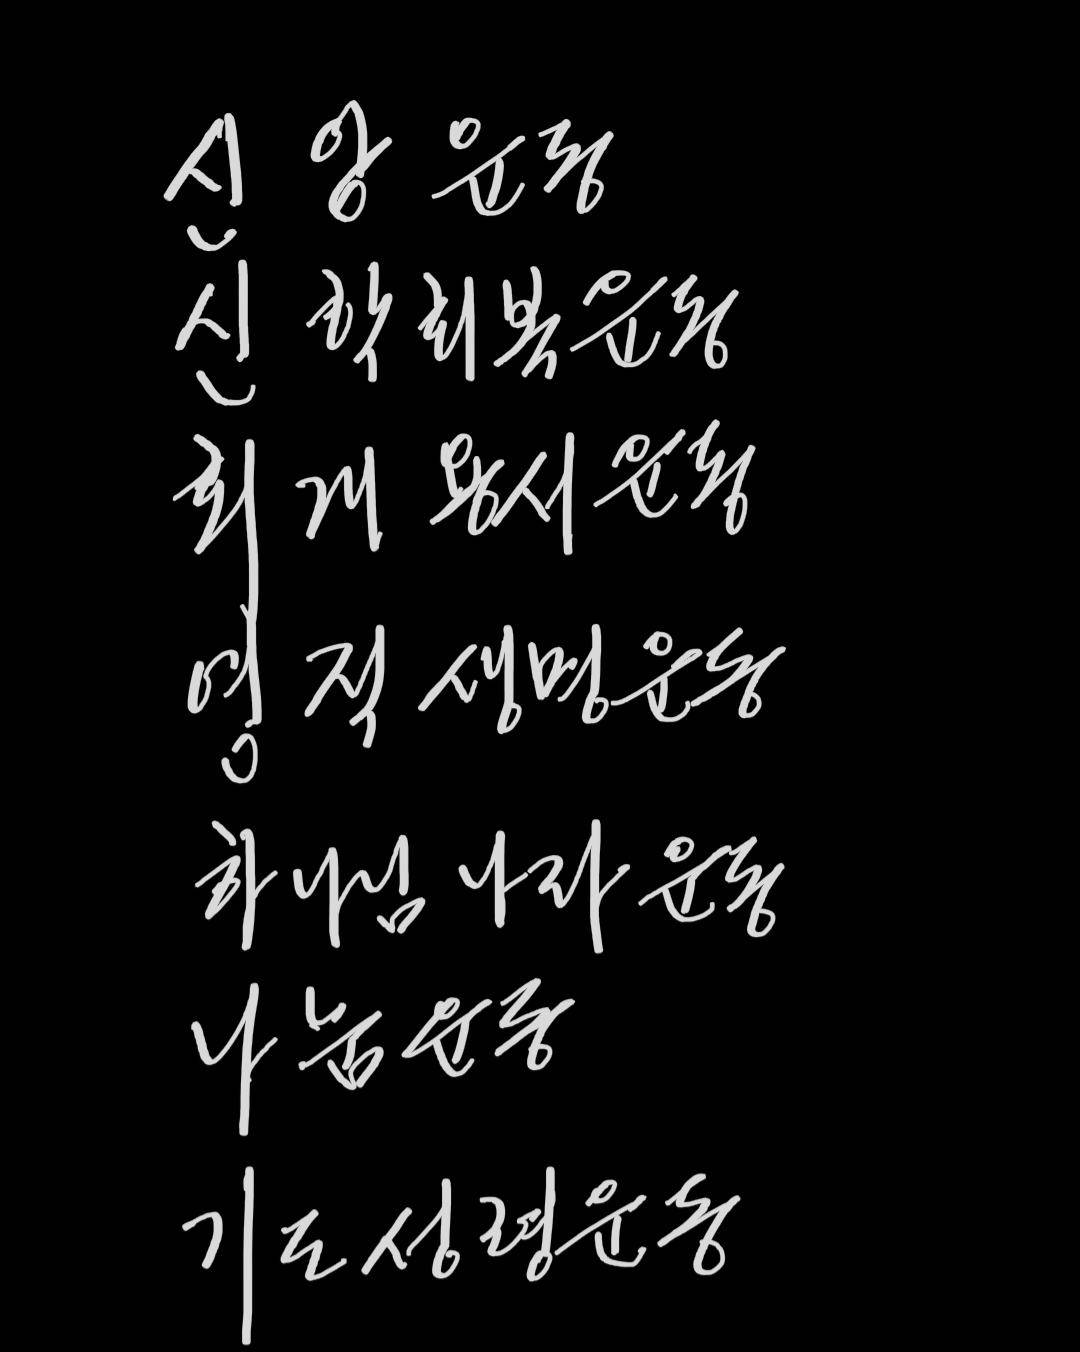 신앙운동
신학회복운동
회개용서운동
영적생명운동
하나님 나라 운동
나눔운동
기도성령운동